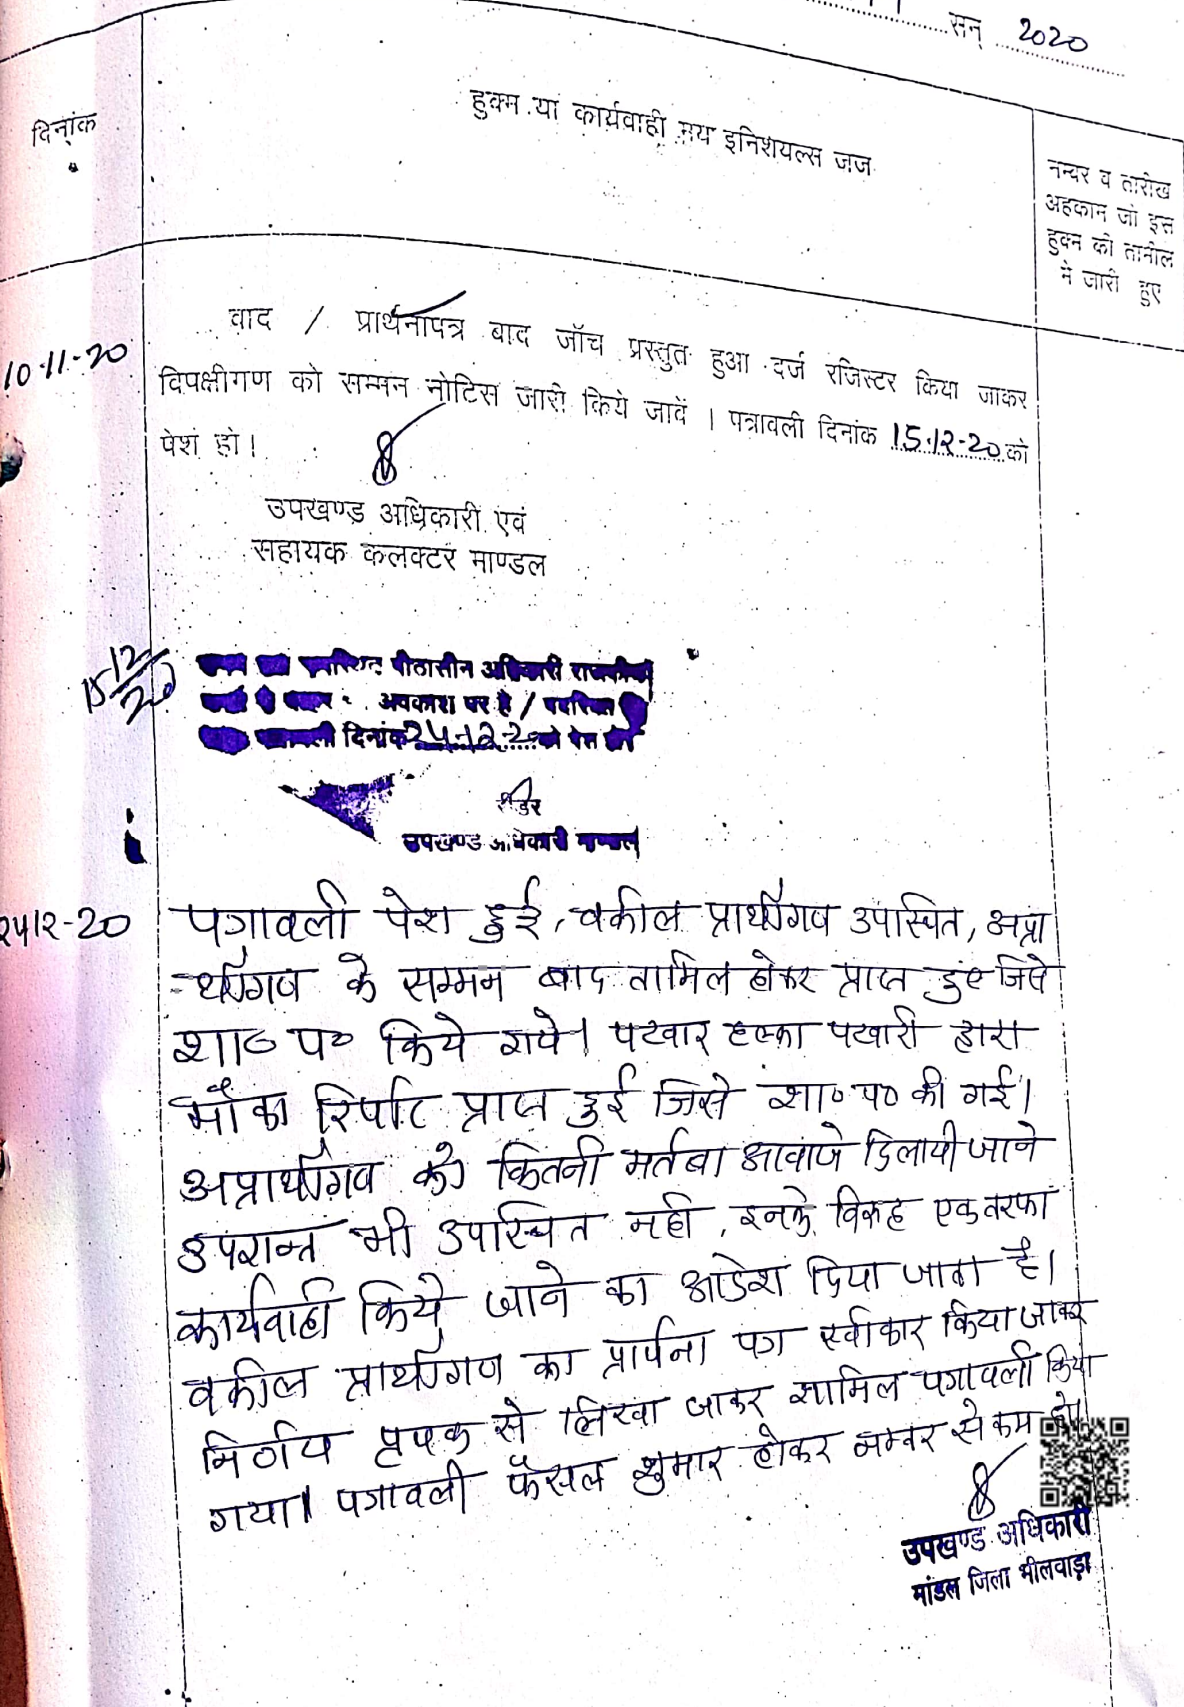 सन् 2020
दिनांक
हुक्म या कार्यवाही मय इनिशयल्स जज
नम्बर व तारीख
अहकाम जो इस
हुक्म की तामील
में जारी हुए
10.11.20
वाद / प्रार्थनापत्र बाद जॉच प्रस्तुत हुआ दर्ज रजिस्टर किया जाकर
विपक्षीगण को सम्मन नोटिस जारी किये जावें । पत्रावली दिनांक 15.12-20 को
पेश हो।
उपखण्ड अधिकारी एवं
सहायक कलक्टर माण्डल
15/12/20
पीठासीन अधिकारी
अवकाश पर है /
दिनांक 24-12-20 को पेश हो
रीडर
उपखण्ड अधिकारी माण्डल
24 12-20
पत्रावली पेश हुई, वकील प्रार्थीगण उपस्थित, अप्रा
-र्थीगण के सम्मन बाद तामिल होकर प्राप्त हुए जिसे
शा० प० किये गये। पटवार हल्का पटवारी द्वारा
मौका रिर्पोट प्राप्त हुई जिसे शा० प० की गई।
अप्रार्थीगण को कितनी मर्तबा आवाजे दिलायी जाने
उपरान्त भी उपस्थित नही, इनके विरूद्ध एकतरफा
कार्यवाही किये जाने का आदेश दिया जाता है।
वकील प्रार्थीगण का प्रार्थना पत्र स्वीकार किया जाकर
निर्णय पृथक से लिखा जाकर शामिल पत्रावली किया
गया। पत्रावली फैसल शुमार होकर नम्बर से कम हो।
उपखण्ड अधिकारी
मांडल जिला भीलवाड़ा